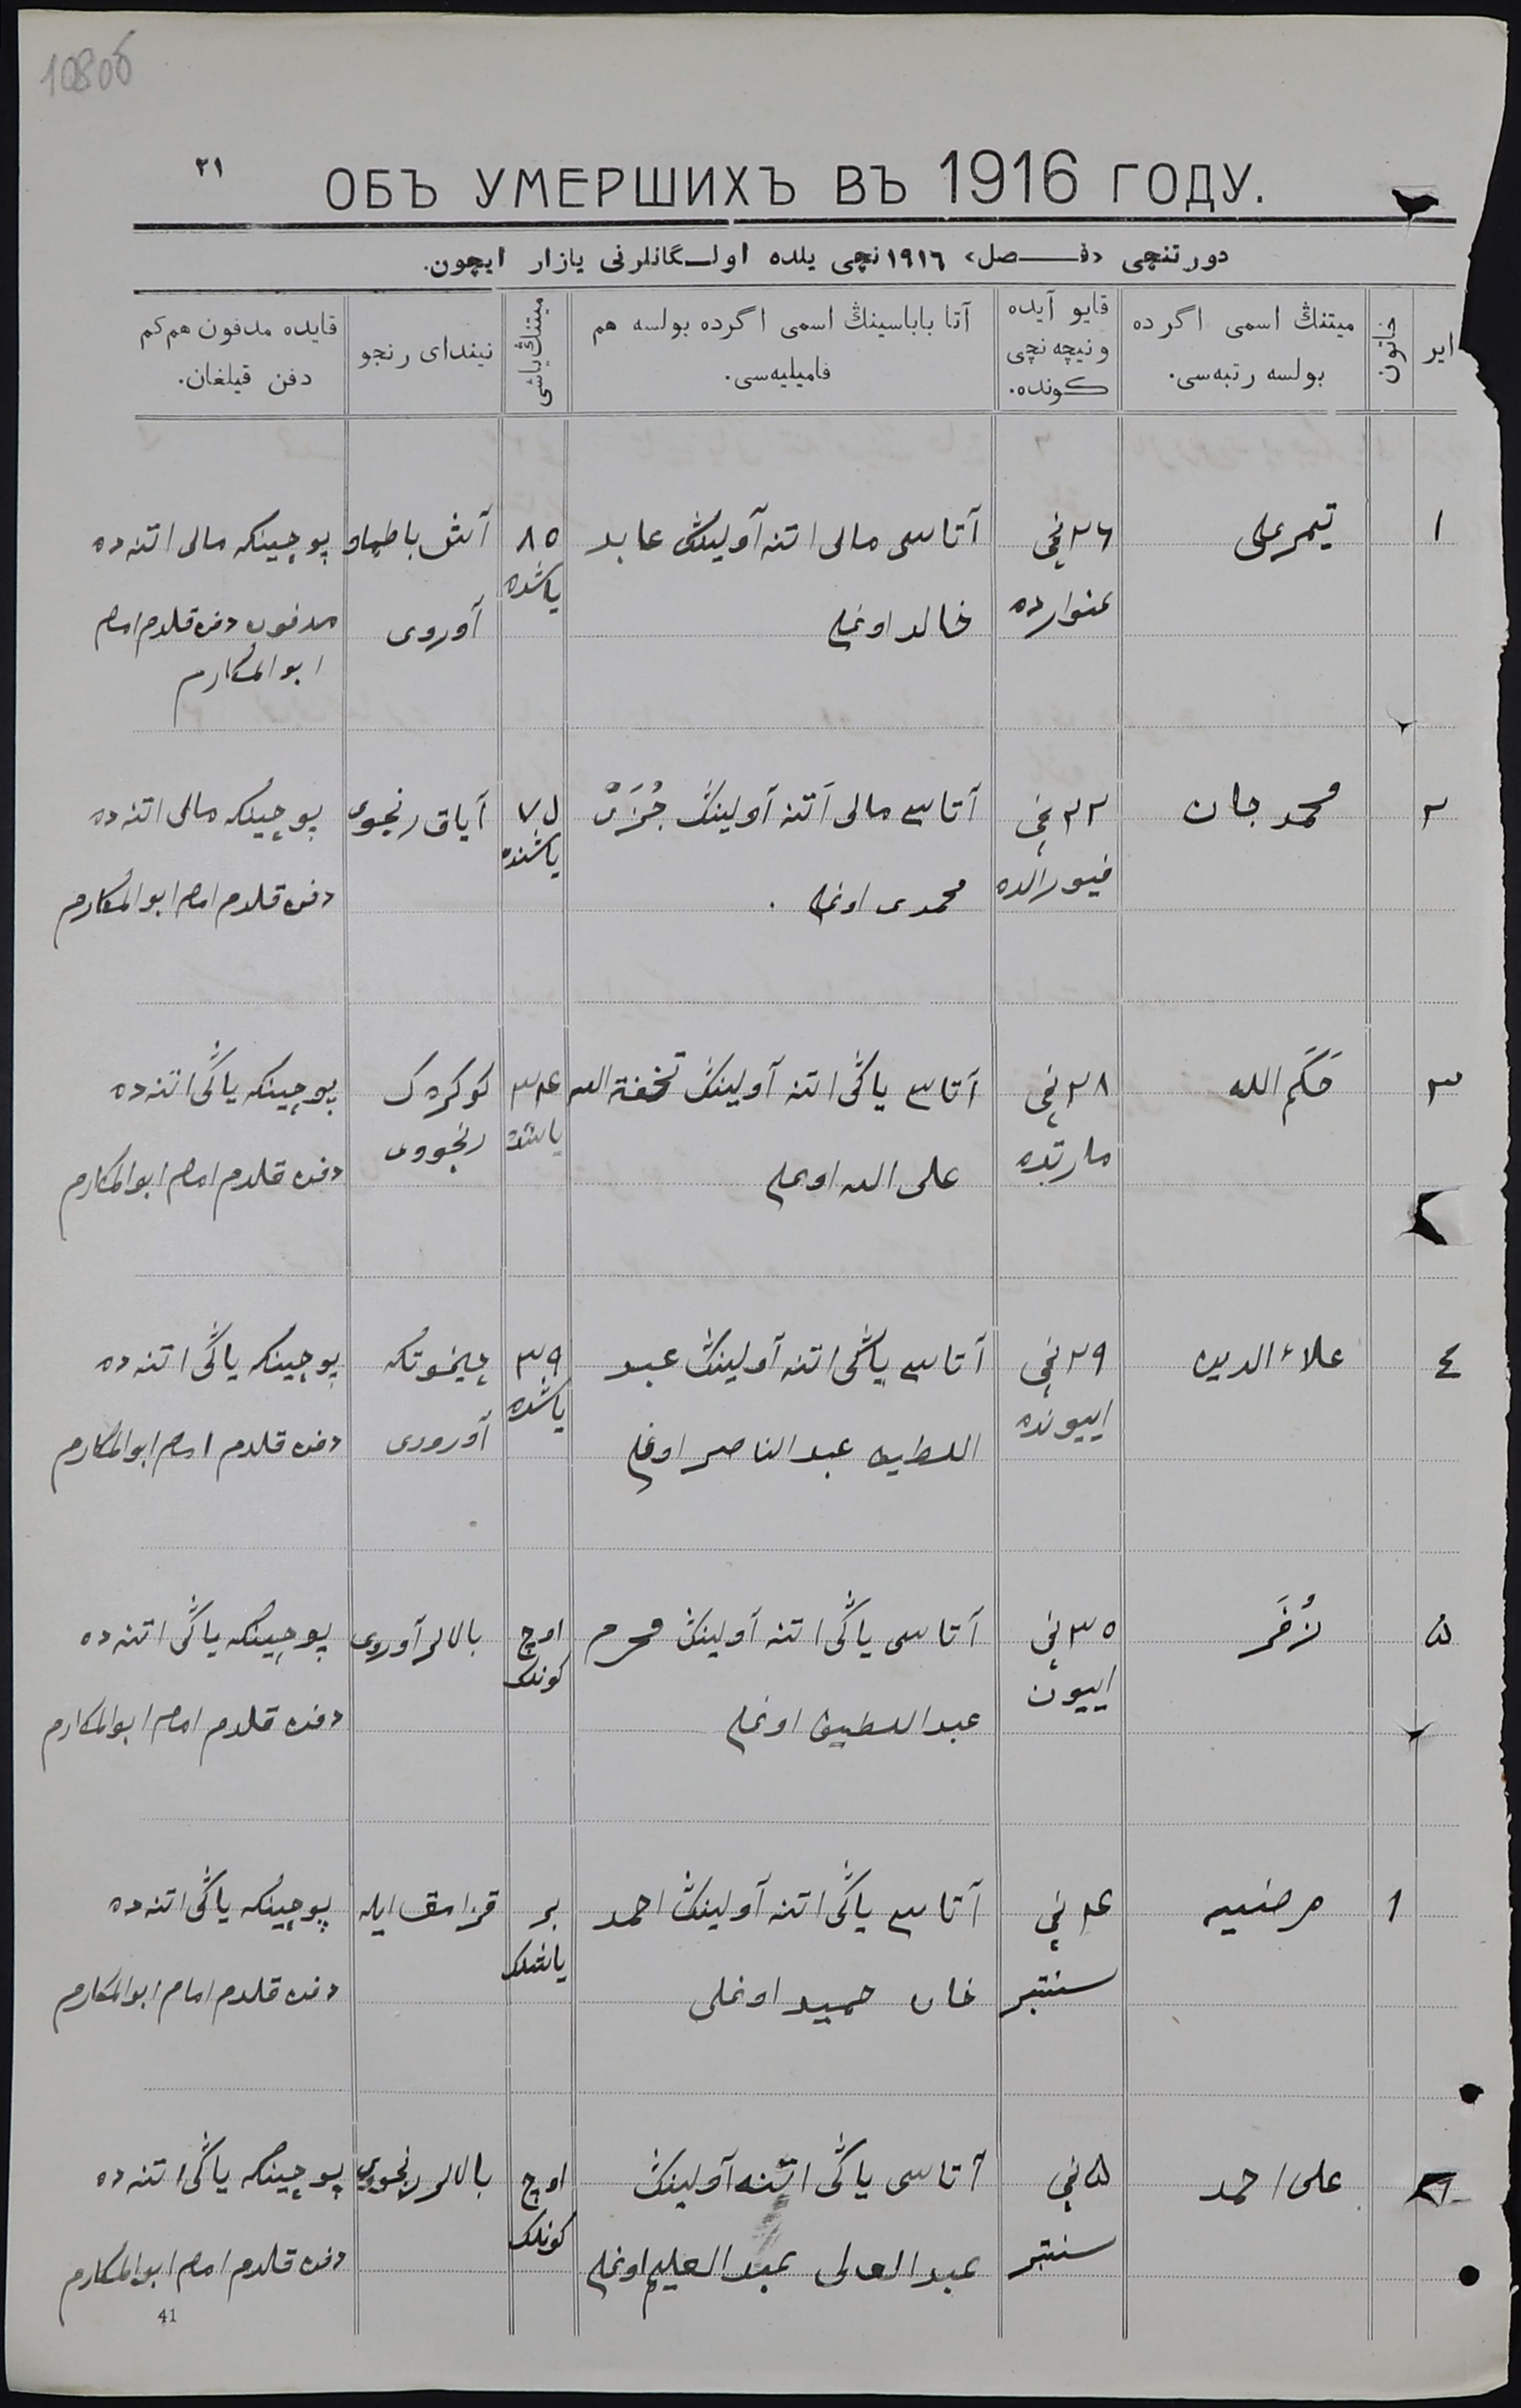 108об
٢١
ОБЪ УМЕРШИХЪ ВЪ 1916 ГОДУ.
دورتنچی «فـــصل» ١٩١٦نچی یلده اولـگانلرنی یازار ایچون.
ایر
خاتون
میتنڭ اسمی اگرده
بولسه رتبه‌سی.
قایو آیده
ونیچه نچی
كونده.
آتا باباسینڭ اسمی اگرده بولسه هم
فامیلیه‌سی.
میتنڭ یاشی
نیندای رنجو
قایده مدفون هم کم
دفن قیلغان.
١
تیمرعلی
٢٦نچی
غنوارده
آتاسی مالی اتنه آولینڭ عابد
خالد اوغلی
٨٥
یاشده
آوروی
پوچینكه مالی اتنه ده
مدفون دفن قلدم امام
ابوالمكارم
٢
محمد جان
٢٢نچی
فیورالده
آتاسی مالی اتنه آولینڭ
محمدی اوغلی
٧٥
یاشنده
آیاق رنجوی
پوچینكه مالی اتنه ده
دفن قلدم امام ابوالمكارم
٣
حَكَم الله
٢٨نچی
مارتده
آتاسی یاڭی اتنه آولینڭ تحفة الله
علی الله اوغلی
٣٤
یاشده
كوكرەك
رنجووی
پوچینكه یاڭی اتنه ده
دفن قلدم امام ابوالمكارم
٤
علاء الدین
٢٩نچی
اییونده
آتاسی یاڭی اتنه آولینڭ عبد
اللطیف عبد الناصر اوغلی
٣٩
یاشده
چیخوتكه
آوروی
پوچینكه یاڭی اتنه ده
دفن قلدم امام ابوالمكارم
٥
زُفَر
٣٠نچی
اییون
آتاسی یاڭی اتنه آولینڭ محرم
عبد اللطیف اوغلی
اوچ
كونلك
بالالر آوروی
پوچینكه یاڭی اتنه ده
دفن قلدم امام ابوالمكارم
١
مرضیه
٤نچی
سنتبر
آتاسی یاڭی اتنه آولینڭ احمد
خان حمید اوغلی
بر
یاشلك
قزامق ایله
پوچینكه یاڭی اتنه ده
دفن قلدم امام ابوالمكارم
٦
علی احمد
٥نچی
سنتبر
آتاسی یاڭی اتنه آولینڭ
عبد العلی عبد العلیم اوغلی
اوچ
كونلك
بالالر رنجوی
پوچینكه یاڭی اتنه ده
دفن قلدم امام ابوالمكارم
41